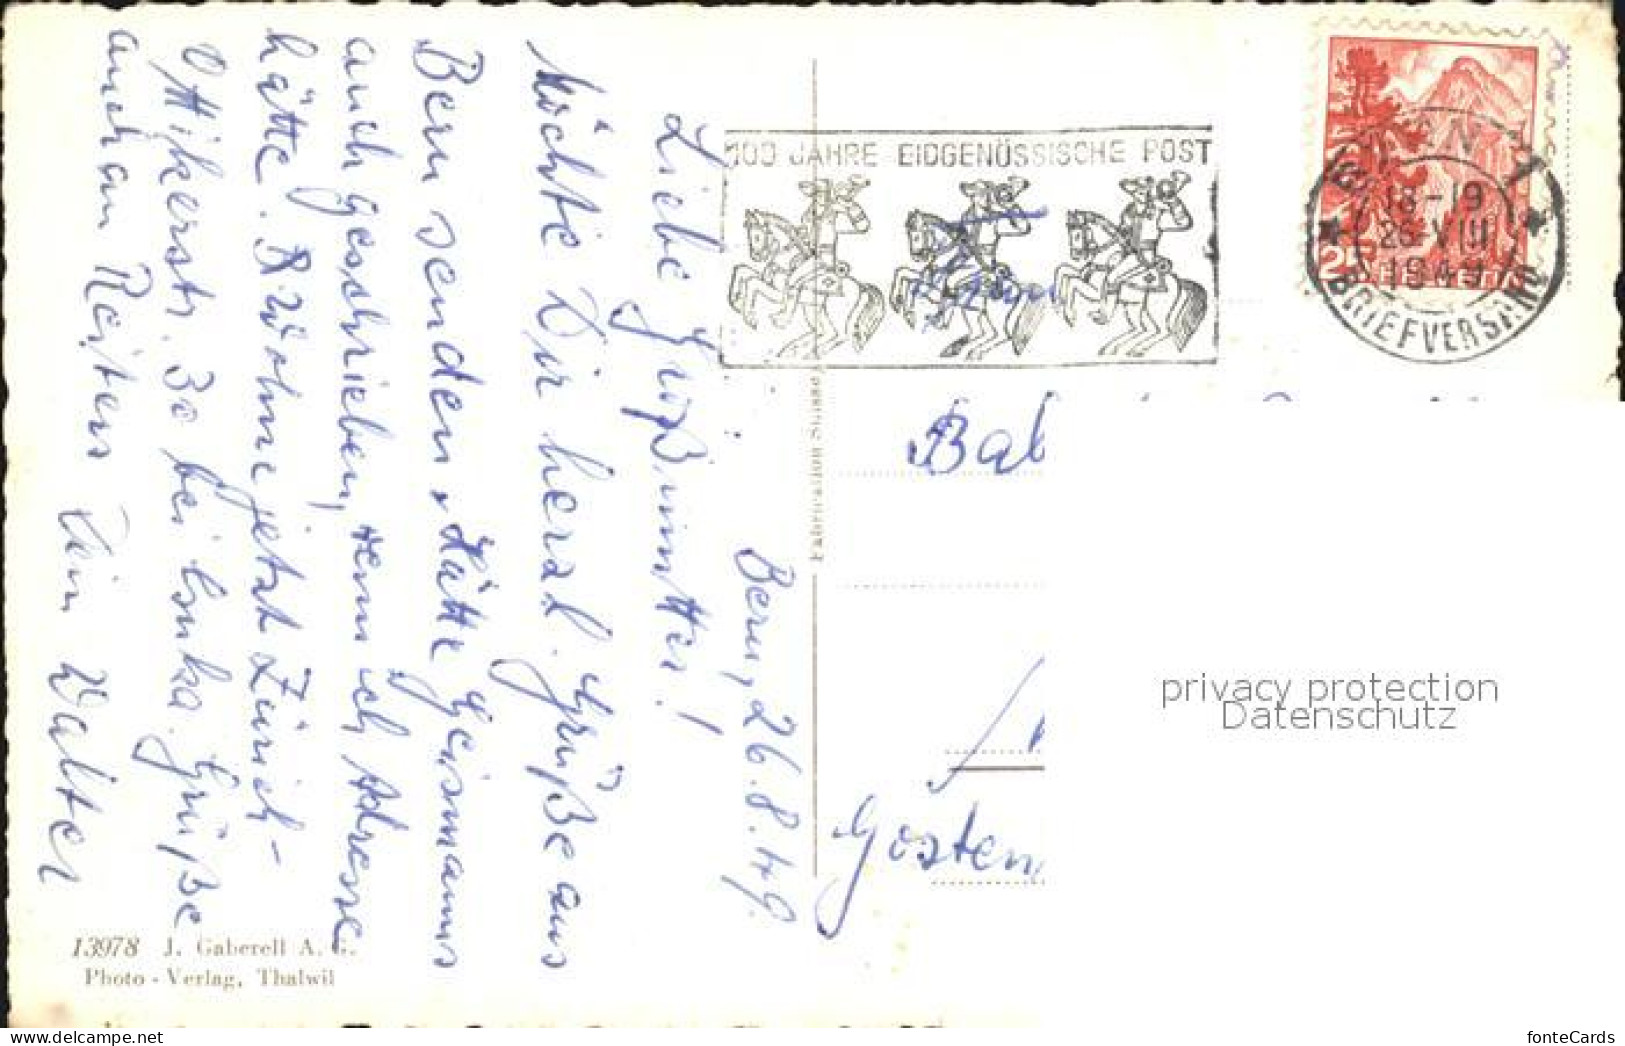 Bern, 26.8.49.
Liebe Großmutter!
Möchte Dir herzl. Grüße aus
Bern senden. Hätte Geismanns
auch geschrieben, wenn ich Adresse
hätte. Bwohne jetzt Zürich-
Ottikerstr. 30 bei Grüße
auch an Reiters Dein Walter
100 JAHRE EIDGENÖSSISCHE POST
18-19
26.VIII
1949
BRIEFVERSAND
25 HELVETIA
Bab
Gosten
Fabrication Suisse
13978 J. Gaberell A. G.
Photo - Verlag, Thalwil
privacy protection
Datenschutz
fonteCards